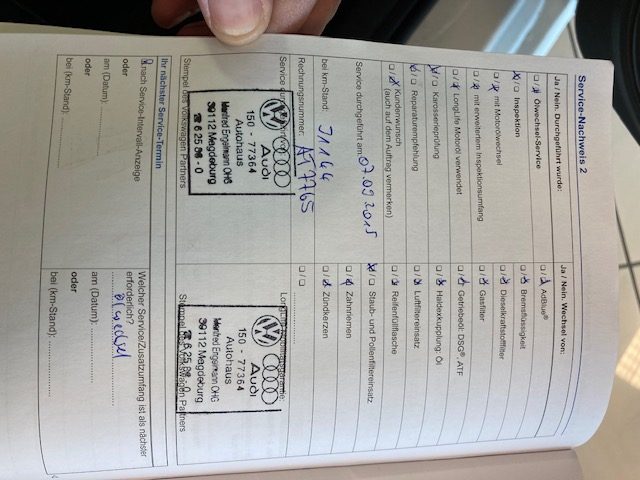 Service-Nachweis 2
Ja / Nein, Durchgeführt wurde:
Ölwechsel-Service
Inspektion
mit Motorölwechsel
mit erweitertem Inspektionsumfang
LongLife Motoröl verwendet
Karosserieprüfung
Reparaturempfehlung
Kundenwunsch
(auch auf dem Auftrag vermerken)
Service durchgeführt am: 07.09.2015
bei km-Stand: 31144
Rechnungsnummer:
Audi
150 - 77364
Autohaus
Manfred Engelmann OHG
39112 Magdeburg
Stempel des Volkswagen Partners
Ja / Nein, Wechsel von:
AdBlue®
Bremsflüssigkeit
Dieselkraftstofffilter
Gasfilter
Getriebeöl: DSG®, ATF
Haldexkupplung: Öl
Luftfiltereinsatz
Reifenfüllflasche
Staub- und Pollenfiltereinsatz
Zahnriemen
Zündkerzen
Audi
150 - 77364
Autohaus
Manfred Engelmann OHG
39112 Magdeburg
Stempel des Volkswagen Partners
Ihr nächster Service-Termin
nach Service-Intervall-Anzeige
oder
am (Datum):
oder
bei (km-Stand):
Welcher Service/Zusatzumfang ist als nächster
erforderlich?
Ölwechsel
am (Datum):
oder
bei (km-Stand):